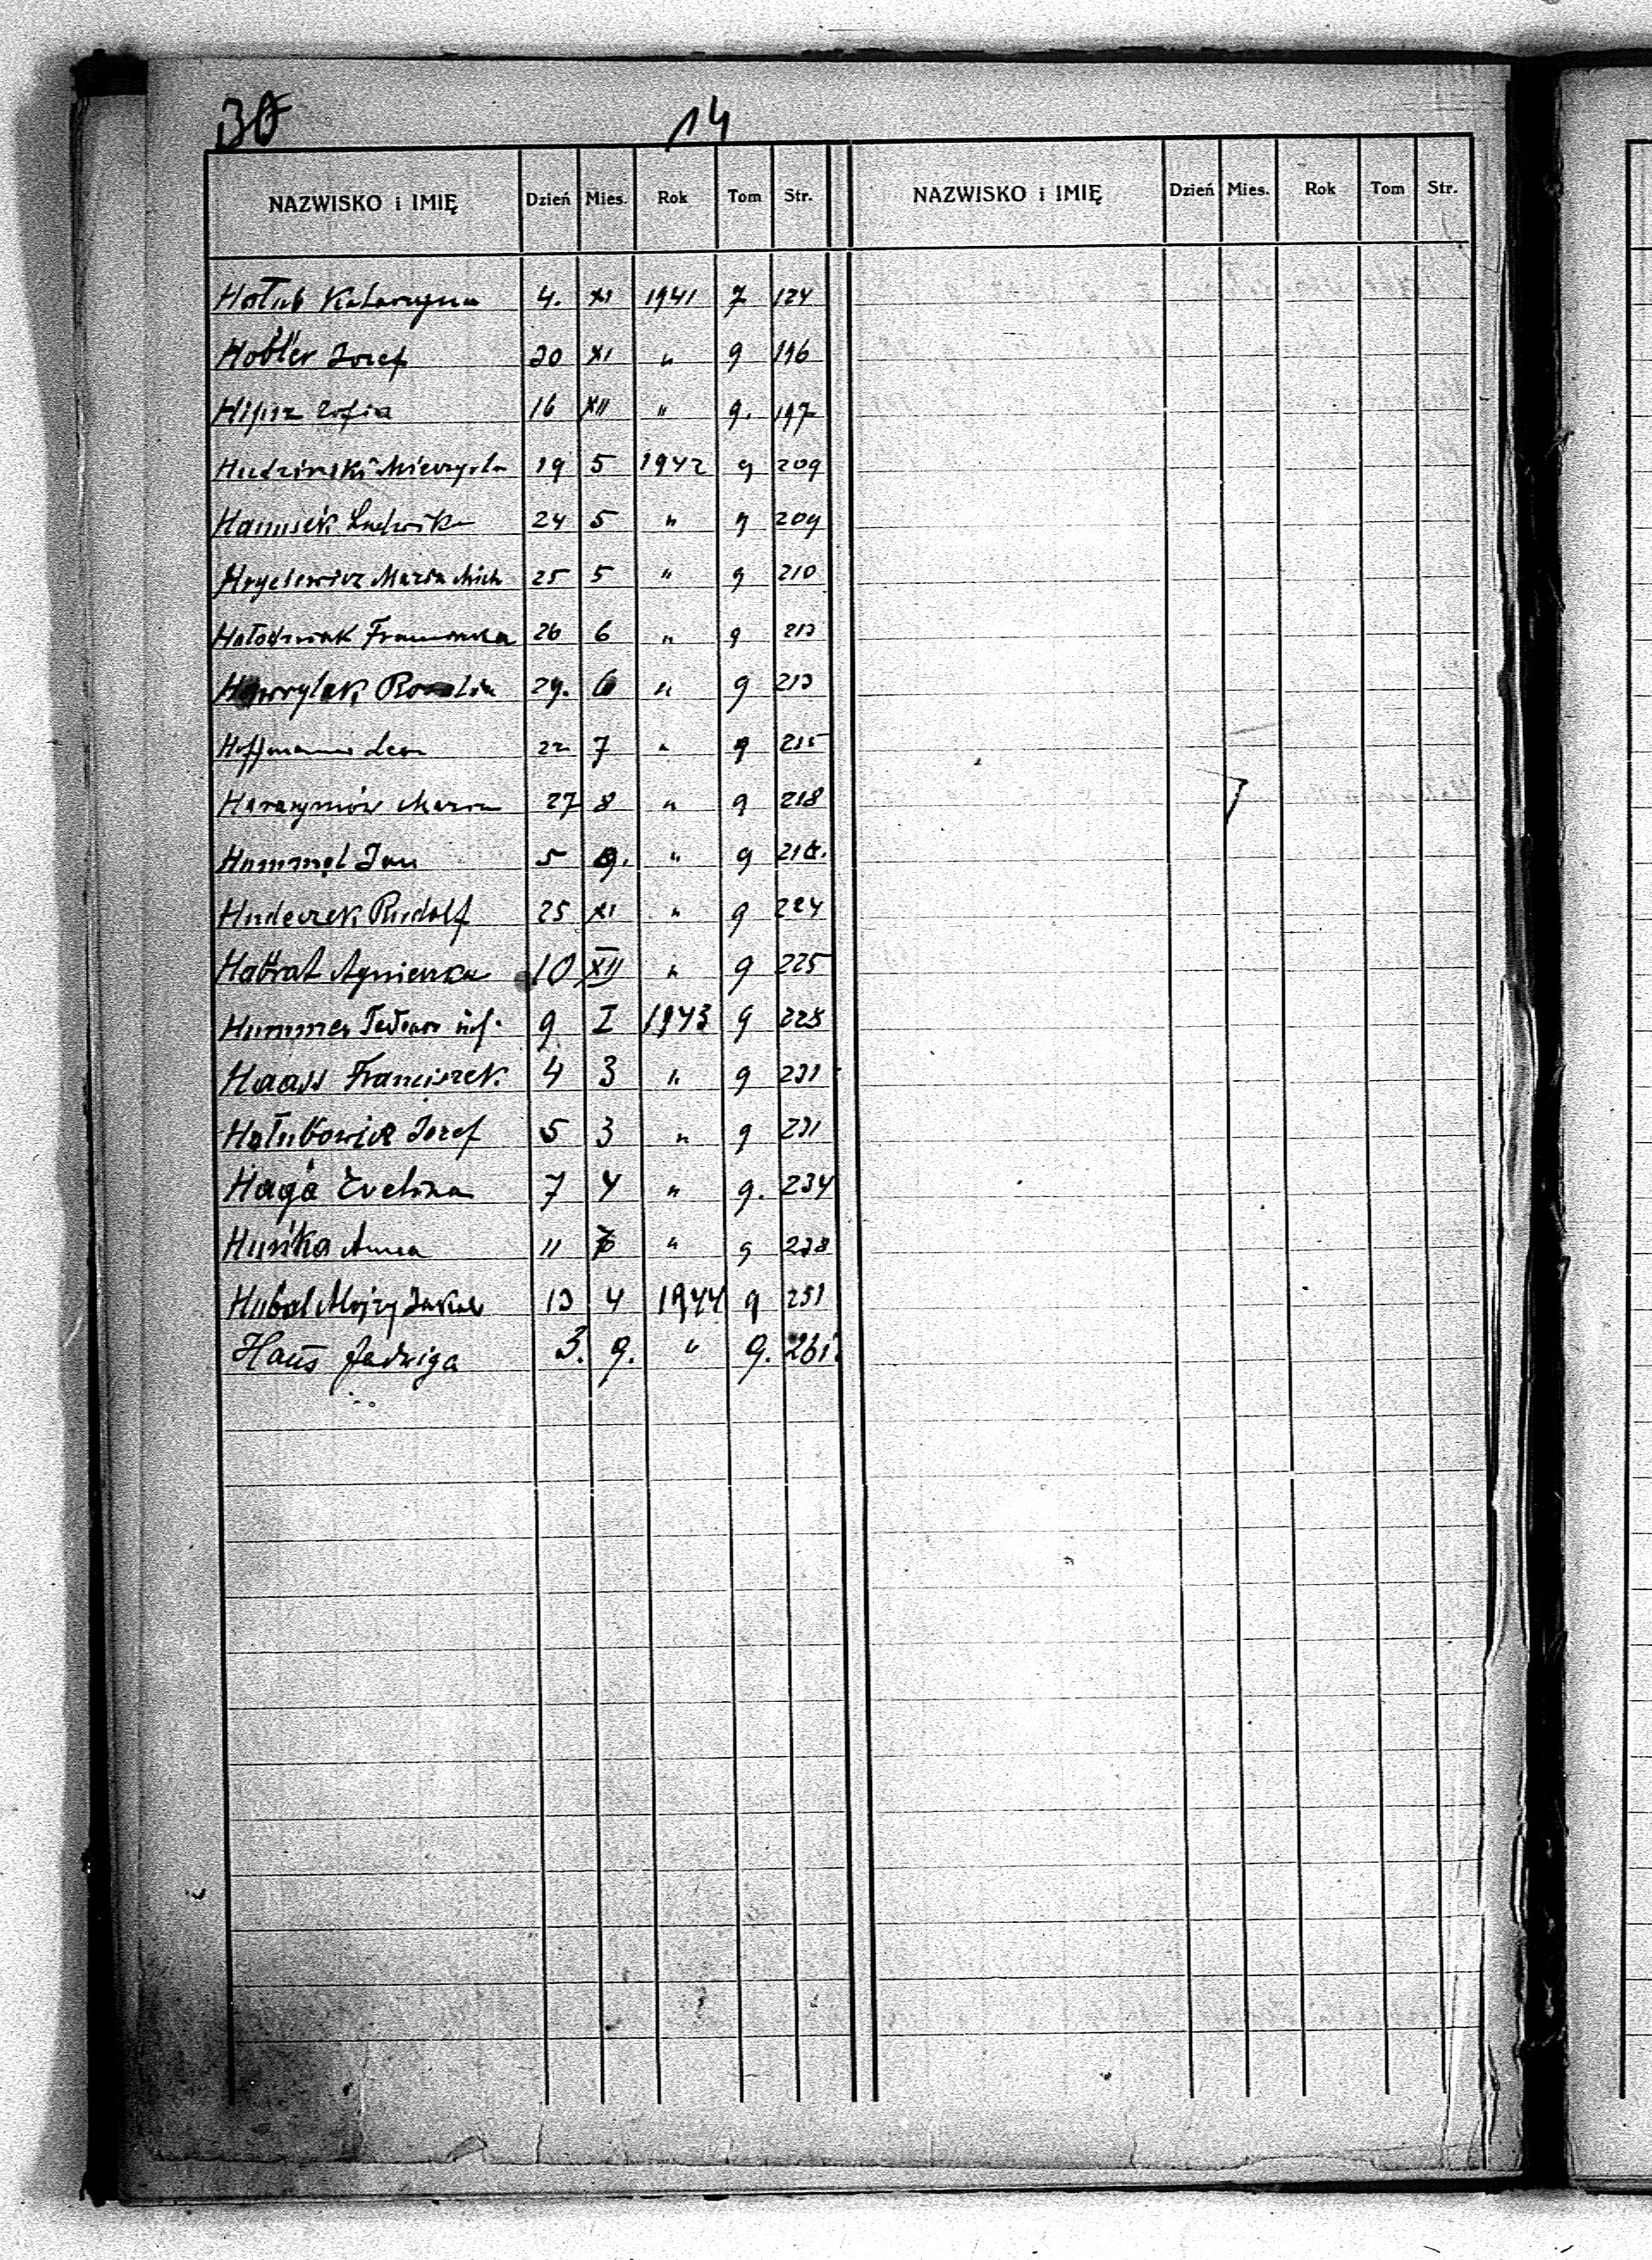 30
14
NAZWISKO i IMIĘ Dzień Mies. Rok Tom Str. NAZWISKO i IMIĘ Dzień Mies. Rok Tom Str.
Hołub Katarzyna 4. XI 1941 7 124
Józef 20 XI " 9 196
Hipsz Zofia 16 XII " 9. 197
Hudziński 19 5 1942 9 209
Ludwika 24 5 " 9 209
Maria Mich 25 5 " 9 210
Hołodniak 26 6 " 9 213
Hawrylak Rozalia 29. 6 " 9 213
Hoffmann Leon 22 7 " 9 215
Harasymów 27 8 " 9 218
Hammel Jan 5 9. " 9
Hudeczek Rudolf 25 XI " 9 224
Habrat Agnieszka 10 XII " 9 225
9 I 1943 9 228
Haass Franciszek 4 3 " 9 231
Hołubowicz Józef 5 3 " 9 231
Haga Evelina 7 4 " 9. 234
Huńka Anna 11 " 9 238
Hubal Alojzy Jakub 13 4 1944 9 251
Haus Jadwiga 3. 9. " 9. 261.